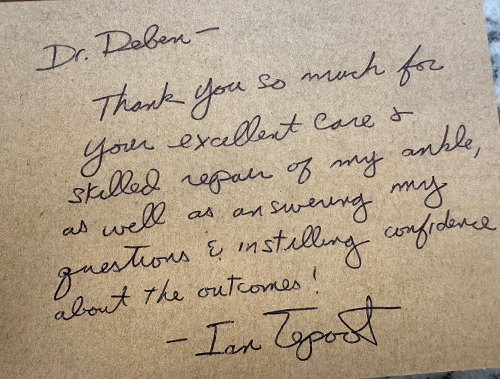 Dr. Deben —
Thank you so much for
your excellent care &
skilled repair of my ankle,
as well as answering my
questions & instilling confidence
about the outcomes!
- Ian Tepoot